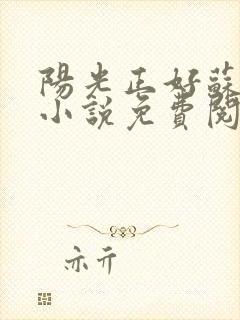 陽光正好蘇
小說免費閱
亦亓